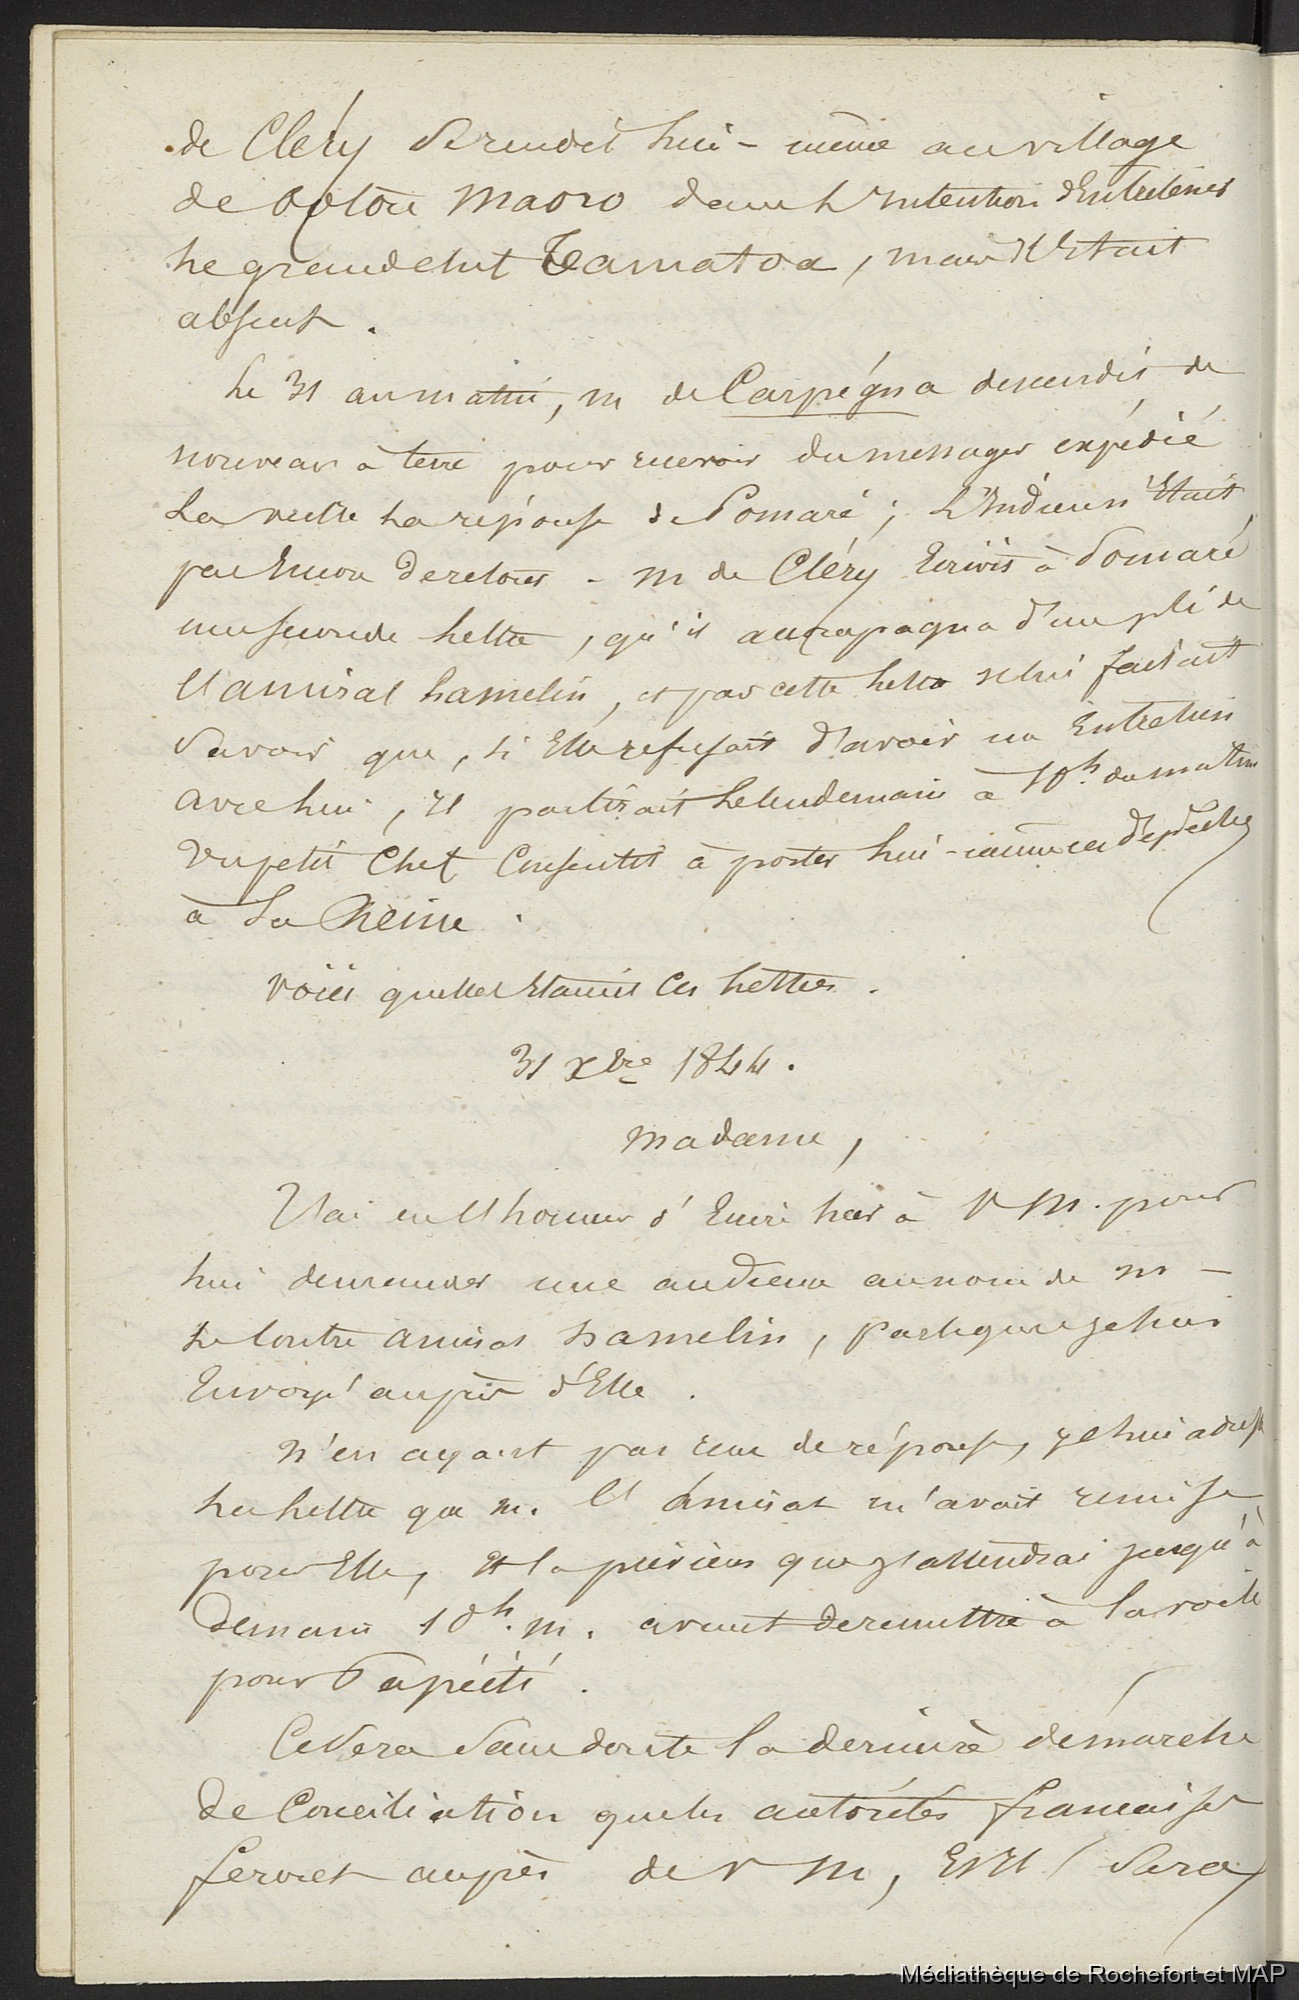 de Cléry se rendit lui-même au village
de Maoro dans l'intention d'entretenir
le grand chef Tamatoa, mais il était
absent.
Le 31 au matin, m de Carpégna descendit de
nouveau à terre pour recevoir du messager expédié
la veille la réponse de Pomaré; l'Indien n'était
pas encore de retour - m de Cléry écrivit à Pomaré
une seconde lettre, qu'il accompagna d'un pli de
l'amiral hamelin, et par cette lettre il lui faisait
savoir que, si Elle refusait d'avoir un Entretien
avec lui, il partirait le lendemain à 10h. du matin
Un petit Chef consentit à porter lui-même ces dépêches
à La Reine.
voici quelles étaient ces lettres.
31 xbre 1844.
Madame,
J'ai eu l'honneur d'Ecrire hier à V M. pour
lui demander une audience au nom de m
le Contre amiral hamelin, par lequel je suis
Envoyé auprès d'Elle.
N'en ayant pas reçu de réponse, je lui adresse
la lettre que m. l'Amiral m'avait remise
pour Elle, et la préviens que j'attendrai jusqu'à
demain 10h. m. avant de remettre à la voile
pour Papéété.
Ce sera sans doute la dernière démarche
de Conciliation que les autorités françaises
feront auprès de V M, Et il sera
Médiathèque de Rochefort et MAP